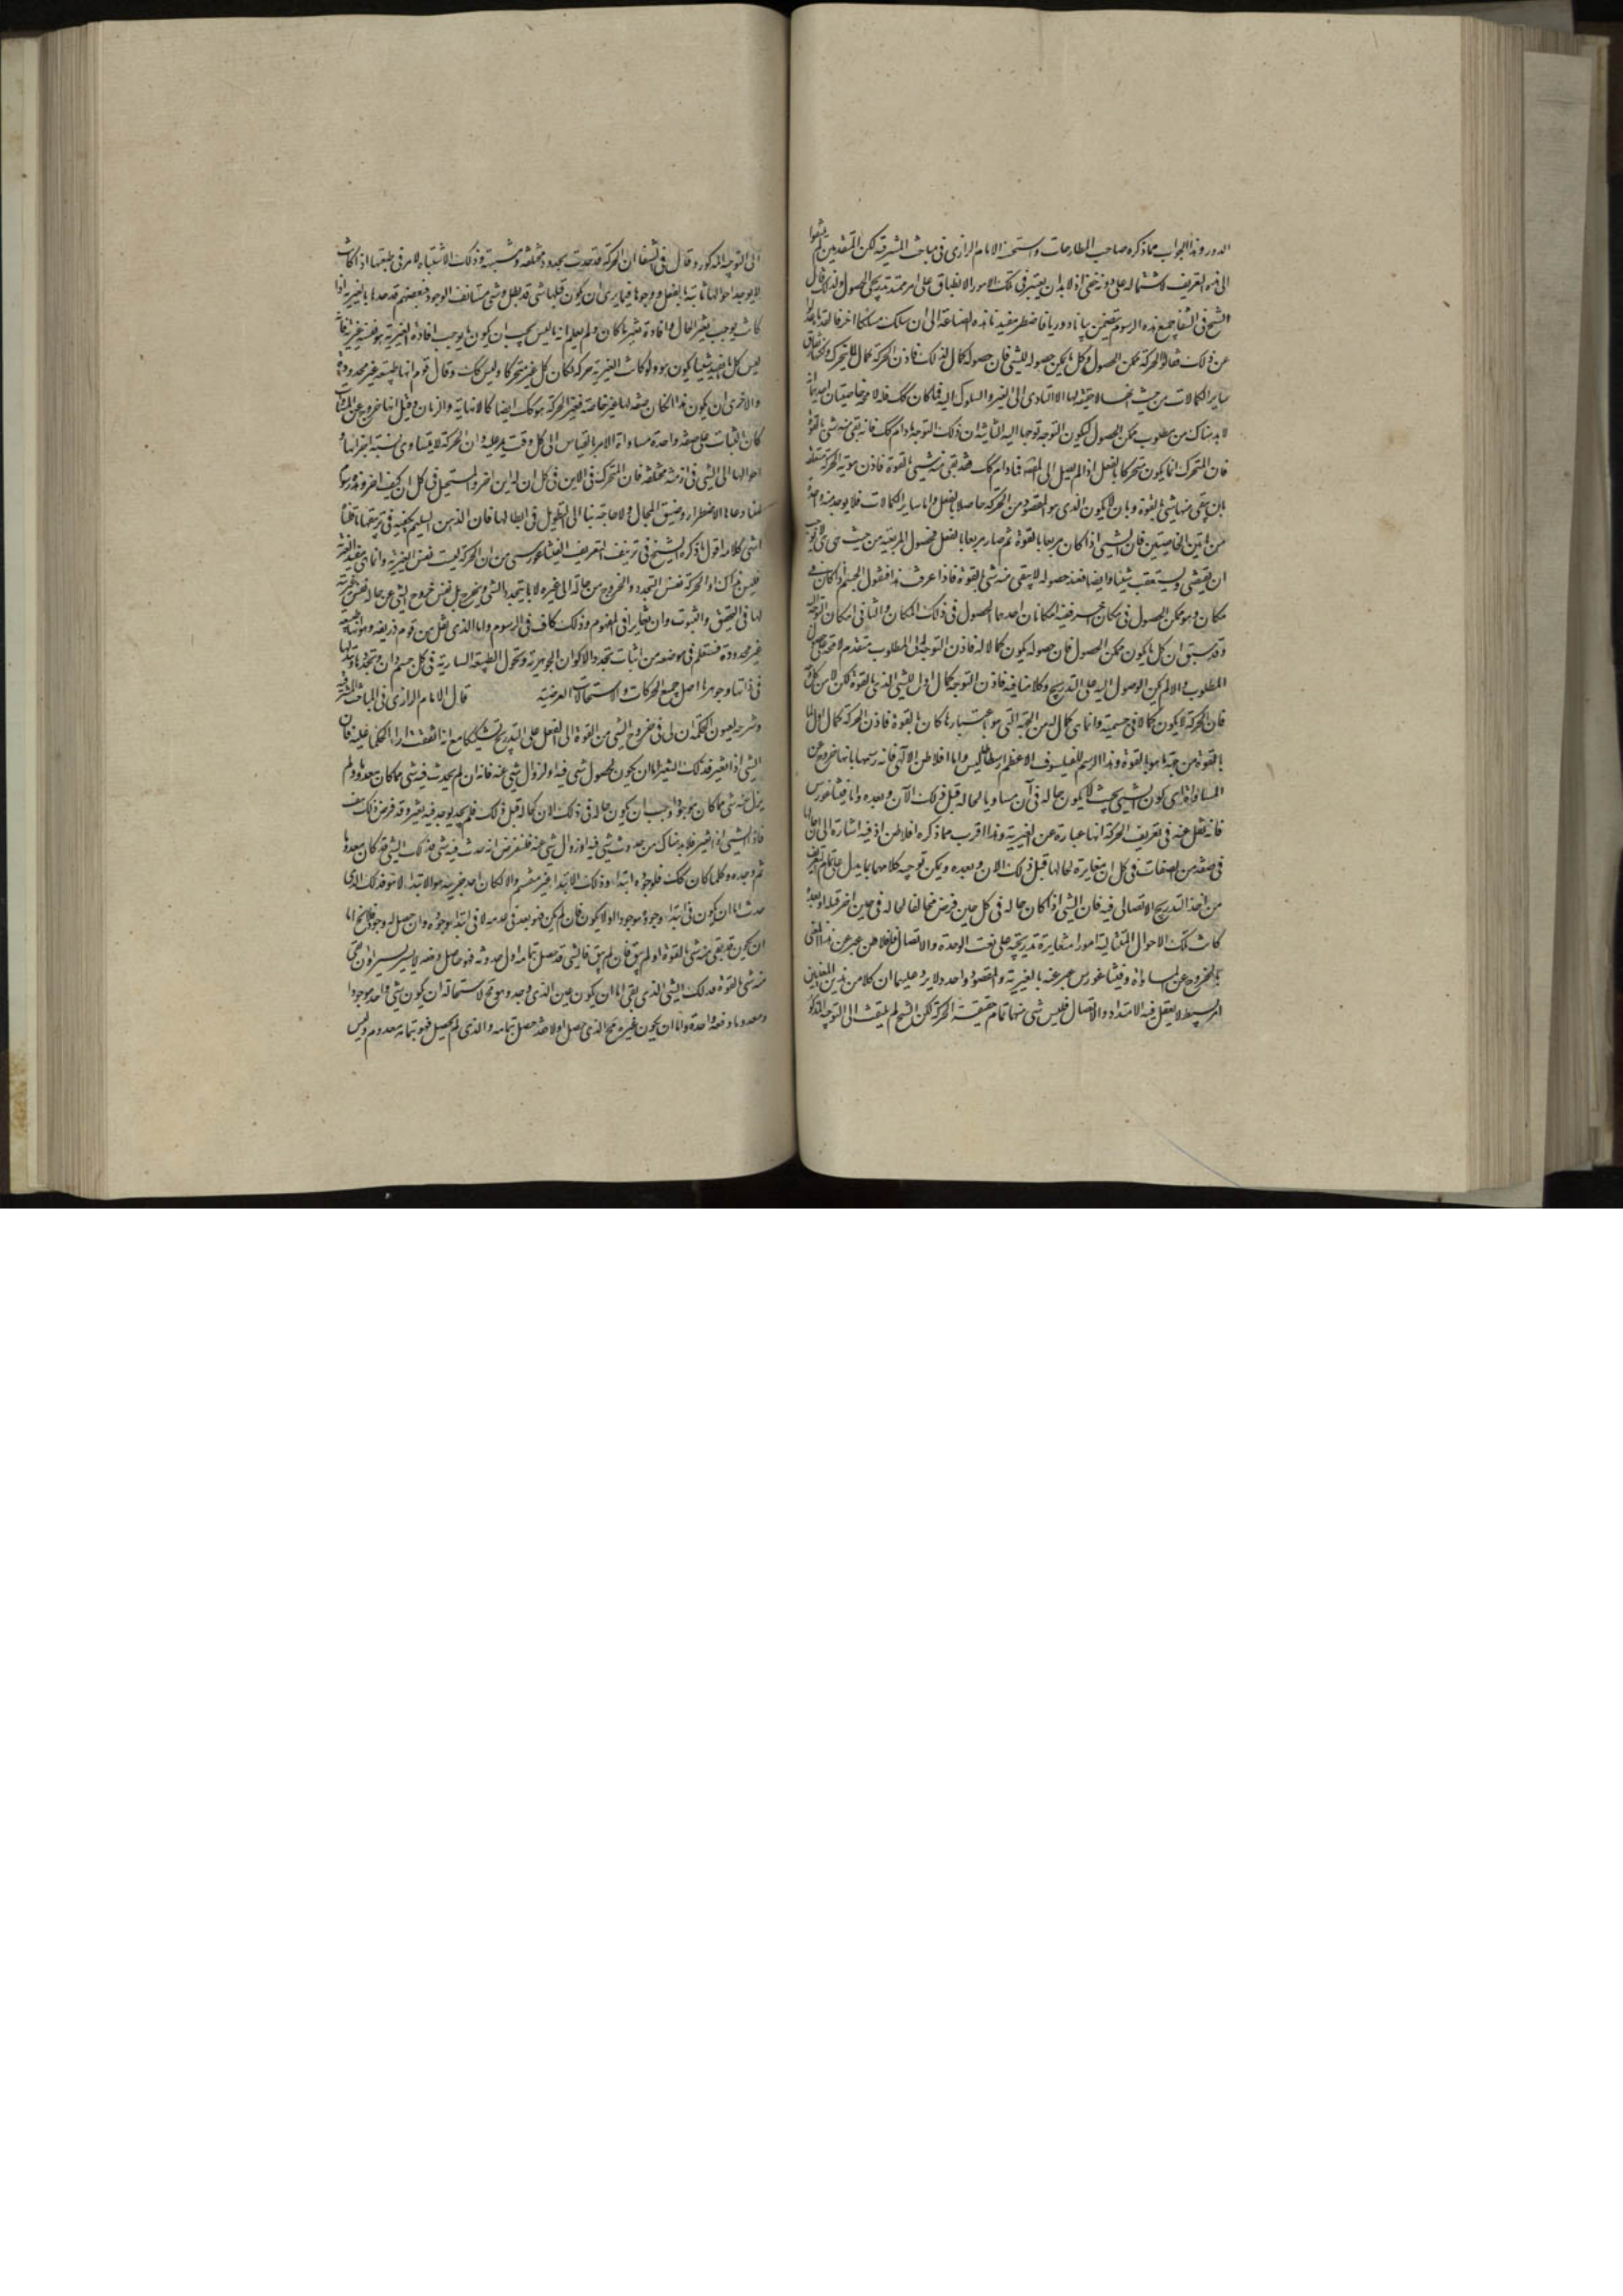 الدور وهذا الجواب مما ذكره صاحب المطارحات واستحسنه الامام الرازى فى مباحث المشرقيه لكن المتقدمين لم يلتفتوا
الى هذه التعريف لاشتماله على دور خفى اذ لا بد ان يعتبر فى تلك الامور الانطباق على امر ممتد تدريجى الحصول ولذلك قال
الشيخ فى الشفا جميع هذه الرسوم يتضمن بيانا دوريا فاضطر مفيدنا هذه الصناعة الى ان سلك مسلكا اخر فالقدماء عدلوا
عن ذلك فقالوا الحركة ممكن الحصول وكل ما يمكن حصوله للشئ فان حصوله كمال لذلك فاذن الحركة كمال للمتحرك ولكنها تفارق
ساير الكمالات من حيث انها لا حقيقة لها الا التادى الى الغير والسلوك اليه فما كان كك فله لا محه خاصيتان احديهما انه
لا بد هناك من مطلوب ممكن الحصول ليكون التوجه توجها اليه الثانيه ان ذلك التوجه ما دام كك فانه بقى منه شئ بالقوة
فان المتحرك انما يكون متحركا بالفعل اذا لم يصل الى المقصد فما دام كك فقد بقى منه شئ بالقوة فاذن هوية الحركة متعلقه
بان يبقى منها شئ بالقوة وبان لا يكون الذى هو المقصود من الحركة حاصلا بالفعل واما ساير الكمالات فلا يوجد فيه واحدة
من هاتين الخاصيتين فان الشئ اذا كان مربعا بالقوة ثم صار مربعا بالفعل فحصول المربعيه من حيث هى هى لا يوجب
ان يقتضى ويستعقب شيئا وايضا فعند حصوله لا يبقى منه شئ بالقوة فاذا عرفت هذا فنقول الجسم اذا كان فى
مكان وهو ممكن الحصول فى مكان اخر ففيه امكانان احدهما الحصول فى ذلك المكان والثانى امكان التوجه اليه
وقد سبق ان كل ما يكون ممكن الحصول فان حصوله يكون كمالا له فاذن التوجه الى المطلوب متقدم لا محه على حصول
المطلوب والا لم يكن الوصول اليه على التدريج وكلامنا فيه فاذن التوجه كمال اول للشئ الذى بالقوة لكن لا من كل وجه
فان الحركة لا يكون كمالا فى جسميته وانما هى كمال له من الجهة التى هو باعتبارها كان بالقوة فاذن الحركة كمال اول لما
بالقوة من جهة ما هو بالقوة وهذا الرسم للفيلسوف الاعظم ارسطاطاليس واما افلاطن الالهى فانه رسمها بانها خروج عن
المساواة اى كون الشئ بحيث لا يكون حاله فى آن مساويا لحاله قبل ذلك الآن وبعده واما فيثاغورس
فانه نقل عنه فى تعريف الحركة انها عبارة عن الغيرية وهذا اقرب مما ذكره افلاطن اذ فيه اشارة الى ان حالها
فى صفة من الصفات فى كل ان مغايرة لحالها قبل ذلك الان وبعده ويمكن توجيه كلامهما بما يدل على تمام تعريف
من اخذ التدريج الاتصالى فيه فان الشئ اذا كان حاله فى كل حين فرض مخالفا لحاله فى حين اخر قبله او بعده
كانت تلك الاحوال المتتالية امورا متغايرة تدريجية على نعت الوحدة والاتصال فافلاطن عبر عن هذا المعنى
بالخروج عن المساواة وفيثاغورس عبر عنه بالغيرية والمقصود واحد ولا يرد عليهما ان كلا من هذين المعنيين
امر بسيط لا يعقل فيه الامتداد والاتصال فليس شئ منهما تمام حقيقة الحركة لكن الشيخ لم يلتفت الى التوجيه المذكور
الى التوجيه المذكور وقال فى الشفا ان الحركة قد حدت بحدود مختلفه مشتبهة وذلك لاشتباه الامر فى طبيعتها اذ كانت
لا يوجد احوالها ثابتة بالفعل ووجودها فيما يرى ان يكون قبلها شئ قد بطل وشئ مستانف الوجود فبعضهم قد حدها بالغيرية اذ
كانت يوجب تغير الحال وافادة لغير ما كان ولم يعلم انه ليس يجب ان يكون ما يوجب افادة الغيرية هو فى نفسه غيرية فانه
ليس كل ما يفيد شيئا يكون هو ولو كانت الغيرية حركة لكان كل غير متحركا وليس كك وقال قوم انها طبيعة غير محدودة
والاحرى ان يكون هذا ان كان صفة لها غير خاصة فغير الحركة ما هو كك ايضا كاللانهاية والزمان وقيل انها خروج عن المساواة
كان الثبات على صفة واحدة مساواة الامر بالقياس الى كل وقت يمر عليه وان الحركة لا يتساوى نسبة اجزائها و
احوالها الى الشئ فى ازمنة مختلفة فان المتحرك فى الاين فى كل ان له اين اخر والمستحيل فى كل ان له كيف اخر وهذه رسوم
انما دعا اليها الاضطرار وضيق المجال ولا حاجة بنا الى التطويل فى ابطالها فان الذهن السليم يكفيه فى تزييفها ما قلناه
انتهى كلامه اقول ما ذكره الشيخ فى تزييف التعريف الفيثاغورسى من ان الحركة ليست نفس الغيرية وانما هى مفيد الغيرية
فليس بذاك اذ الحركة نفس التجدد والخروج من حالة الى غيرها لا ما به يتجدد الشئ ويخرج بل نفس خروج الشئ عن حاله نفس غيريته
لها فى التحقق والثبوت وان تغايرا فى المفهوم وذلك كاف فى الرسوم واما الذى نقل من قوم ذريعه وهو انها طبيعة
غير محدودة فستعلم فى موضعه من اثبات تجدد الاكوان الجوهرية وتحول الطبيعة السارية فى كل جسم وان تجددها وتبدلها
فى ذاتها وجوهرها اصل جميع الحركات والاستحالات العرضية قال الامام الرازى فى المباحث المشرقيه
وشرحه لعيون الحكمة ان لى فى خروج الشئ من القوة الى الفعل على التدريج تشكيكا مع انه اتفقت اراء الحكماء عليه فان
الشئ اذا تغير فذلك التغير اما ان يكون لحصول شئ فيه او لزوال شئ عنه فانه ان لم يحدث فيه شئ مما كان معدوما ولم
يزل عنه شئ مما كان موجودا وجب ان يكون حاله فى ذلك الان كحاله قبل ذلك فلم يوجد فيه تغير وقد فرض ذلك هف
فاذن الشئ اذا تغير فلا بد هناك من حدوث شئ فيه او زوال شئ عنه فلنفرض انه حدث فيه شئ فذلك الشئ قد كان معدوما
ثم وجد وكلما كان كك فلوجوده ابتداء وذلك الابتداء غير منقسم والا لكان احد جزئيه هو الابتداء لا هو فذلك الذى
حدث اما ان يكون فى ابتداء وجوده موجودا او لا يكون فان لم يكن فهو بعد فى عدمه لا فى ابتداء وجوده وان حصل له وجود فلا يخ اما
ان يكون قد بقى منه شئ بالقوة او لم يبق فان لم يبق فالشئ قد حصل بتمامه فى اول حدوثه فهو حاصل دفعة لا يسيرا يسيرا وان بقى
منه شئ بالقوة فذلك الشئ الذى بقى اما ان يكون عين الذى وجد وهو مح لاستحالة ان يكون شئ واحد موجودا
ومعدوما دفعة واحدة واما ان يكون غيره فح الذى حصل اولا فقد حصل بتمامه والذى لم يحصل فهو بتمامه معدوم وليس